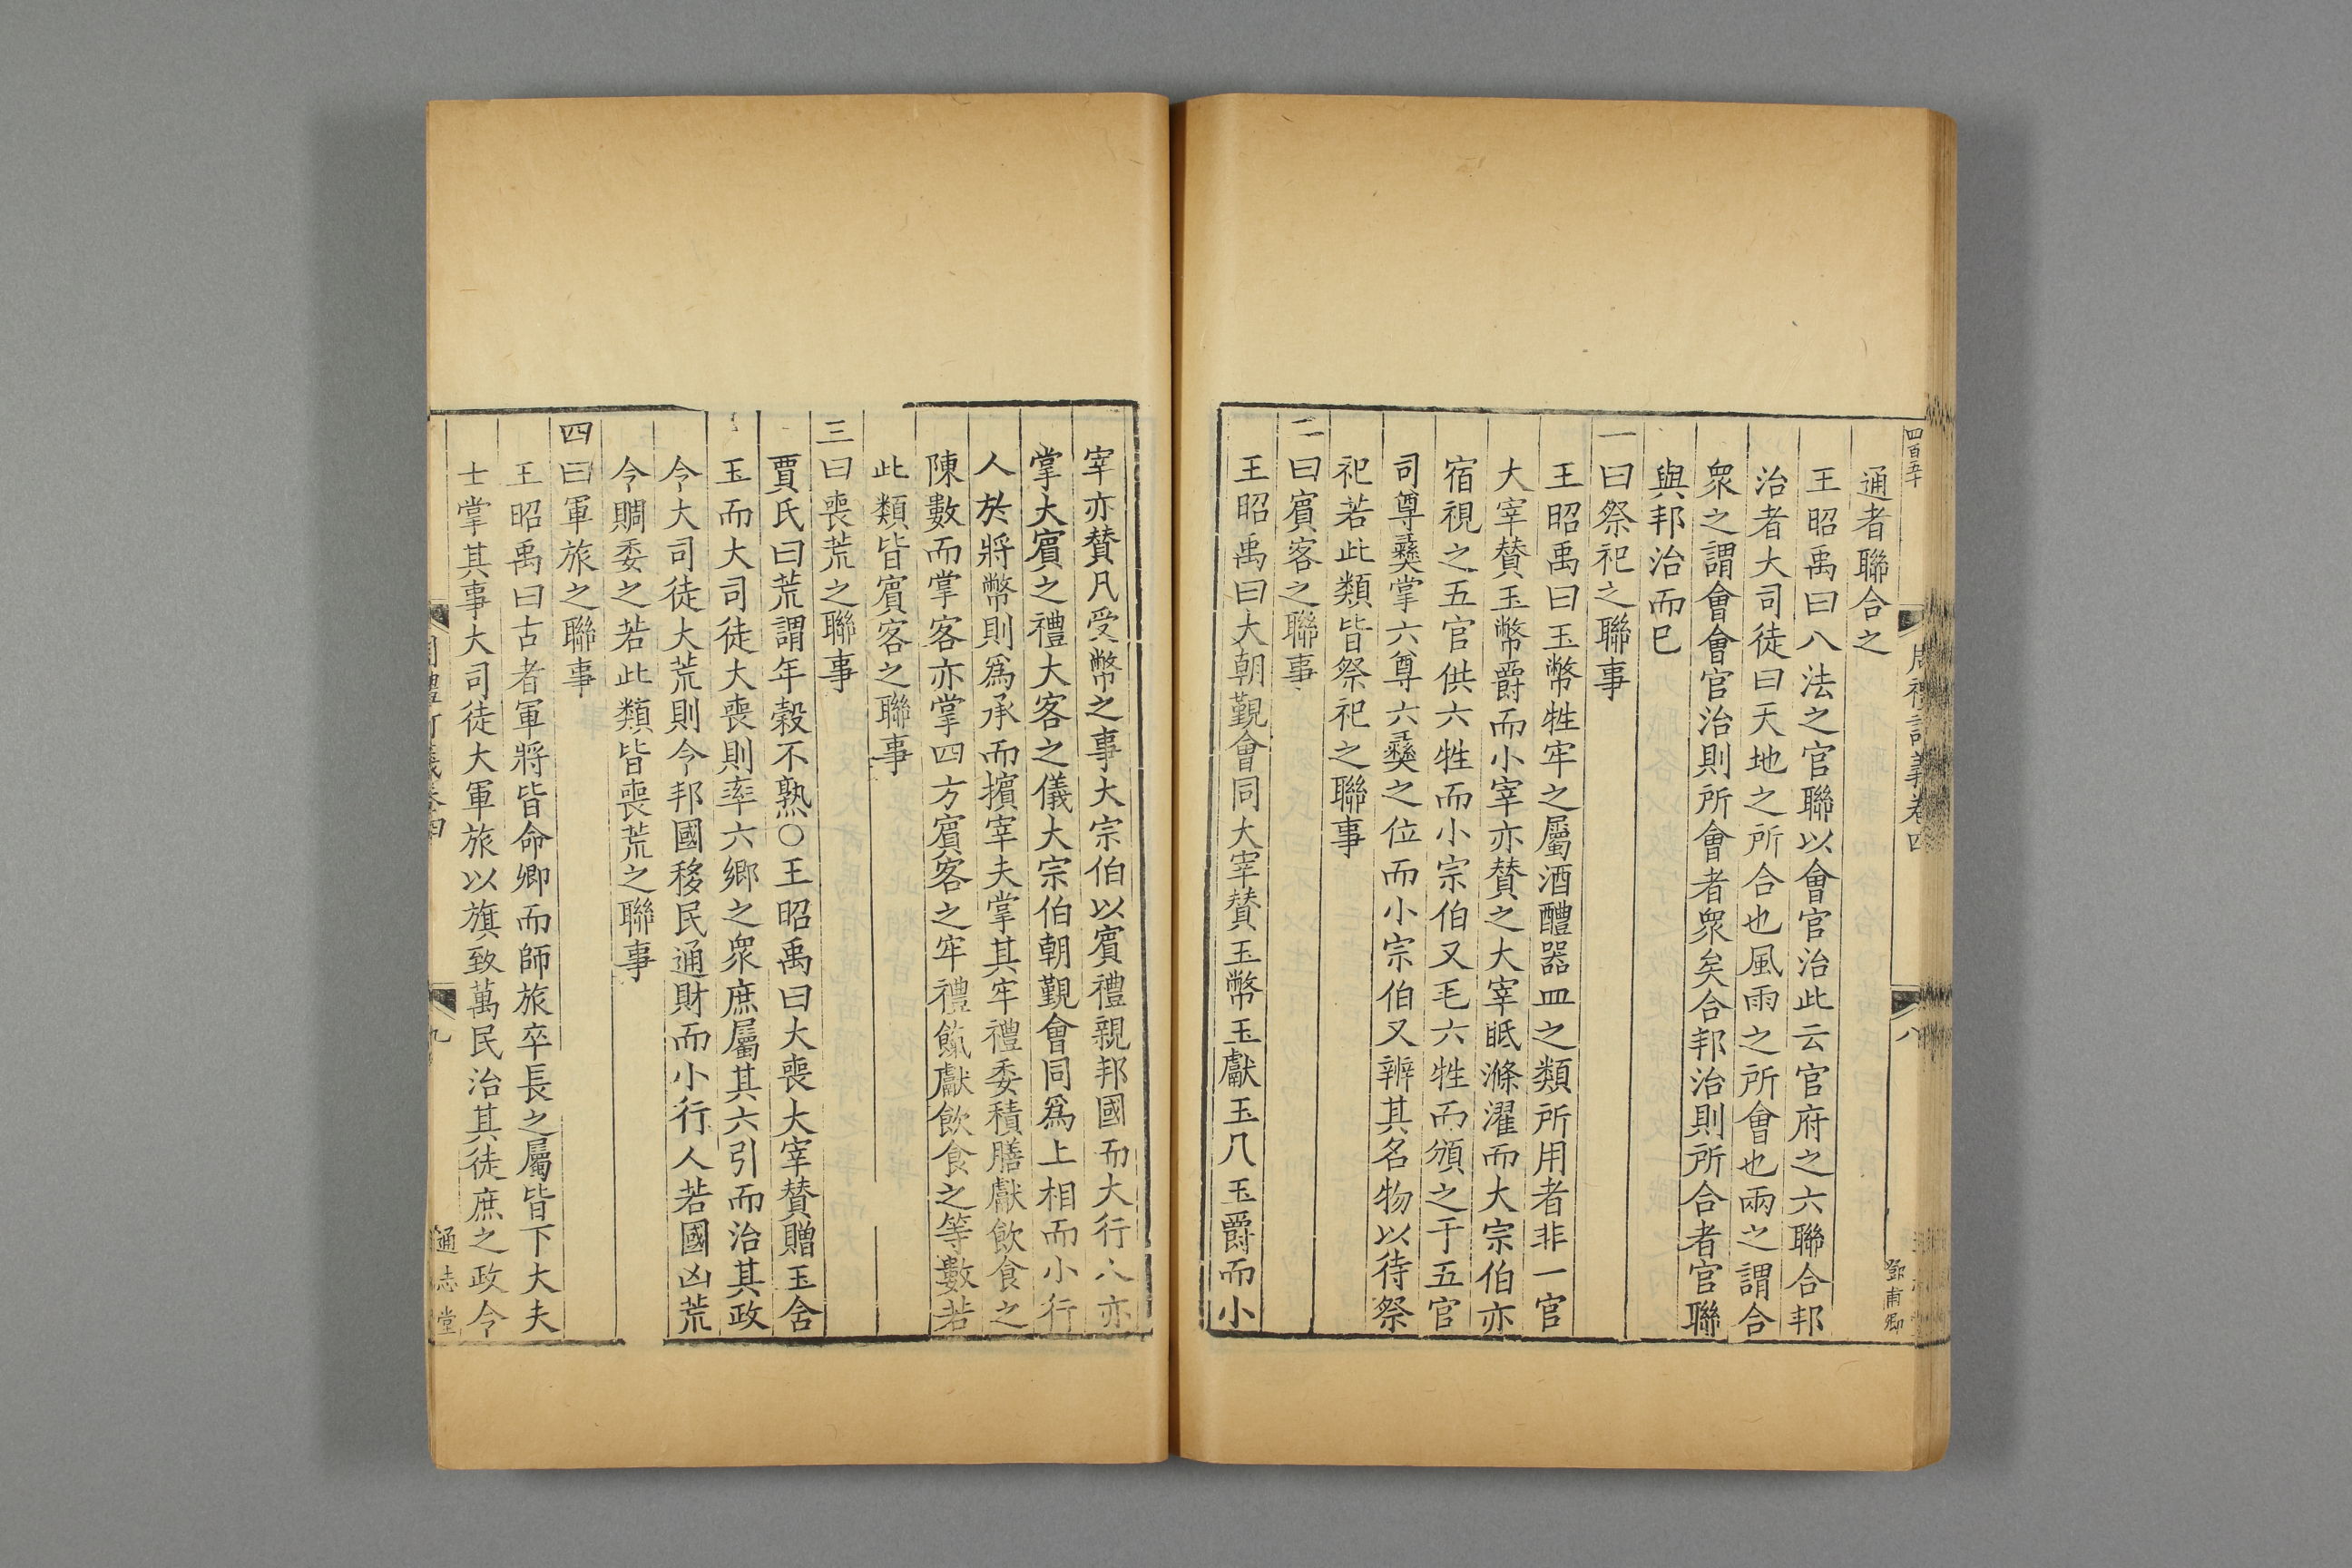 四百五十
周禮訂義卷四
八
鄧甫卿
通者聯合之
王昭禹曰八法之官聯以會官治此云官府之六聯合邦
治者大司徒曰天地之所合也風雨之所會也兩之謂合
衆之謂會會官治則所會者衆矣合邦治則所合者官聯
與邦治而巳
一曰祭祀之聯事
王昭禹曰玉幣牲牢之屬酒醴器皿之類所用者非一官
大宰賛玉幣爵而小宰亦賛之大宰眡滌濯而大宗伯亦
宿視之五官供六牲而小宗伯又毛六牲而頒之于五官
司尊彝掌六尊六彝之位而小宗伯又辨其名物以待祭
祀若此類皆祭祀之聯事
二曰賔客之聯事
王昭禹曰大朝覲會同大宰賛玉幣玉獻玉几玉爵而小
宰亦賛凡受幣之事大宗伯以賔禮親邦國而大行人亦
掌大賔之禮大客之儀大宗伯朝覲會同爲上相而小行
人於將幣則爲承而擯宰夫掌其牢禮委積膳獻飲食之
陳數而掌客亦掌四方賔客之牢禮餼獻飲食之等數若
此類皆賔客之聯事
三曰喪荒之聯事
賈氏曰荒謂年穀不熟○王昭禹曰大喪大宰賛贈玉含
玉而大司徒大喪則率六鄉之衆庶屬其六引而治其政
令大司徒大荒則令邦國移民通財而小行人若國凶荒
令賙委之若此類皆喪荒之聯事
四曰軍旅之聯事
王昭禹曰古者軍將皆命卿而師旅卒長之屬皆下大夫
士掌其事大司徒大軍旅以旗致萬民治其徒庶之政令
周禮訂義卷四
九
通志堂